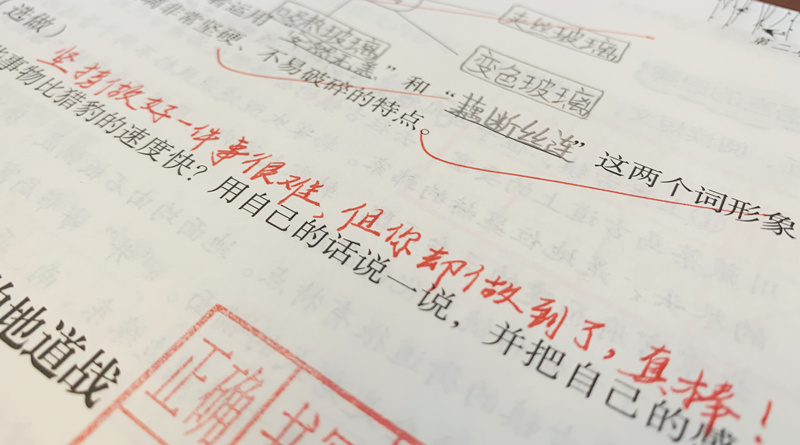 (选做)
吸热玻璃
夹丝玻璃
变色玻璃
第二
运用“安然无恙”和“藕断丝连”这两个词形象
非常坚硬、不易破碎的特点。
坚持做好一件事很难,但你却做到了,真棒!
事物比猎豹的速度快?用自己的话说一说,并把自己的感
地道战
正确书写